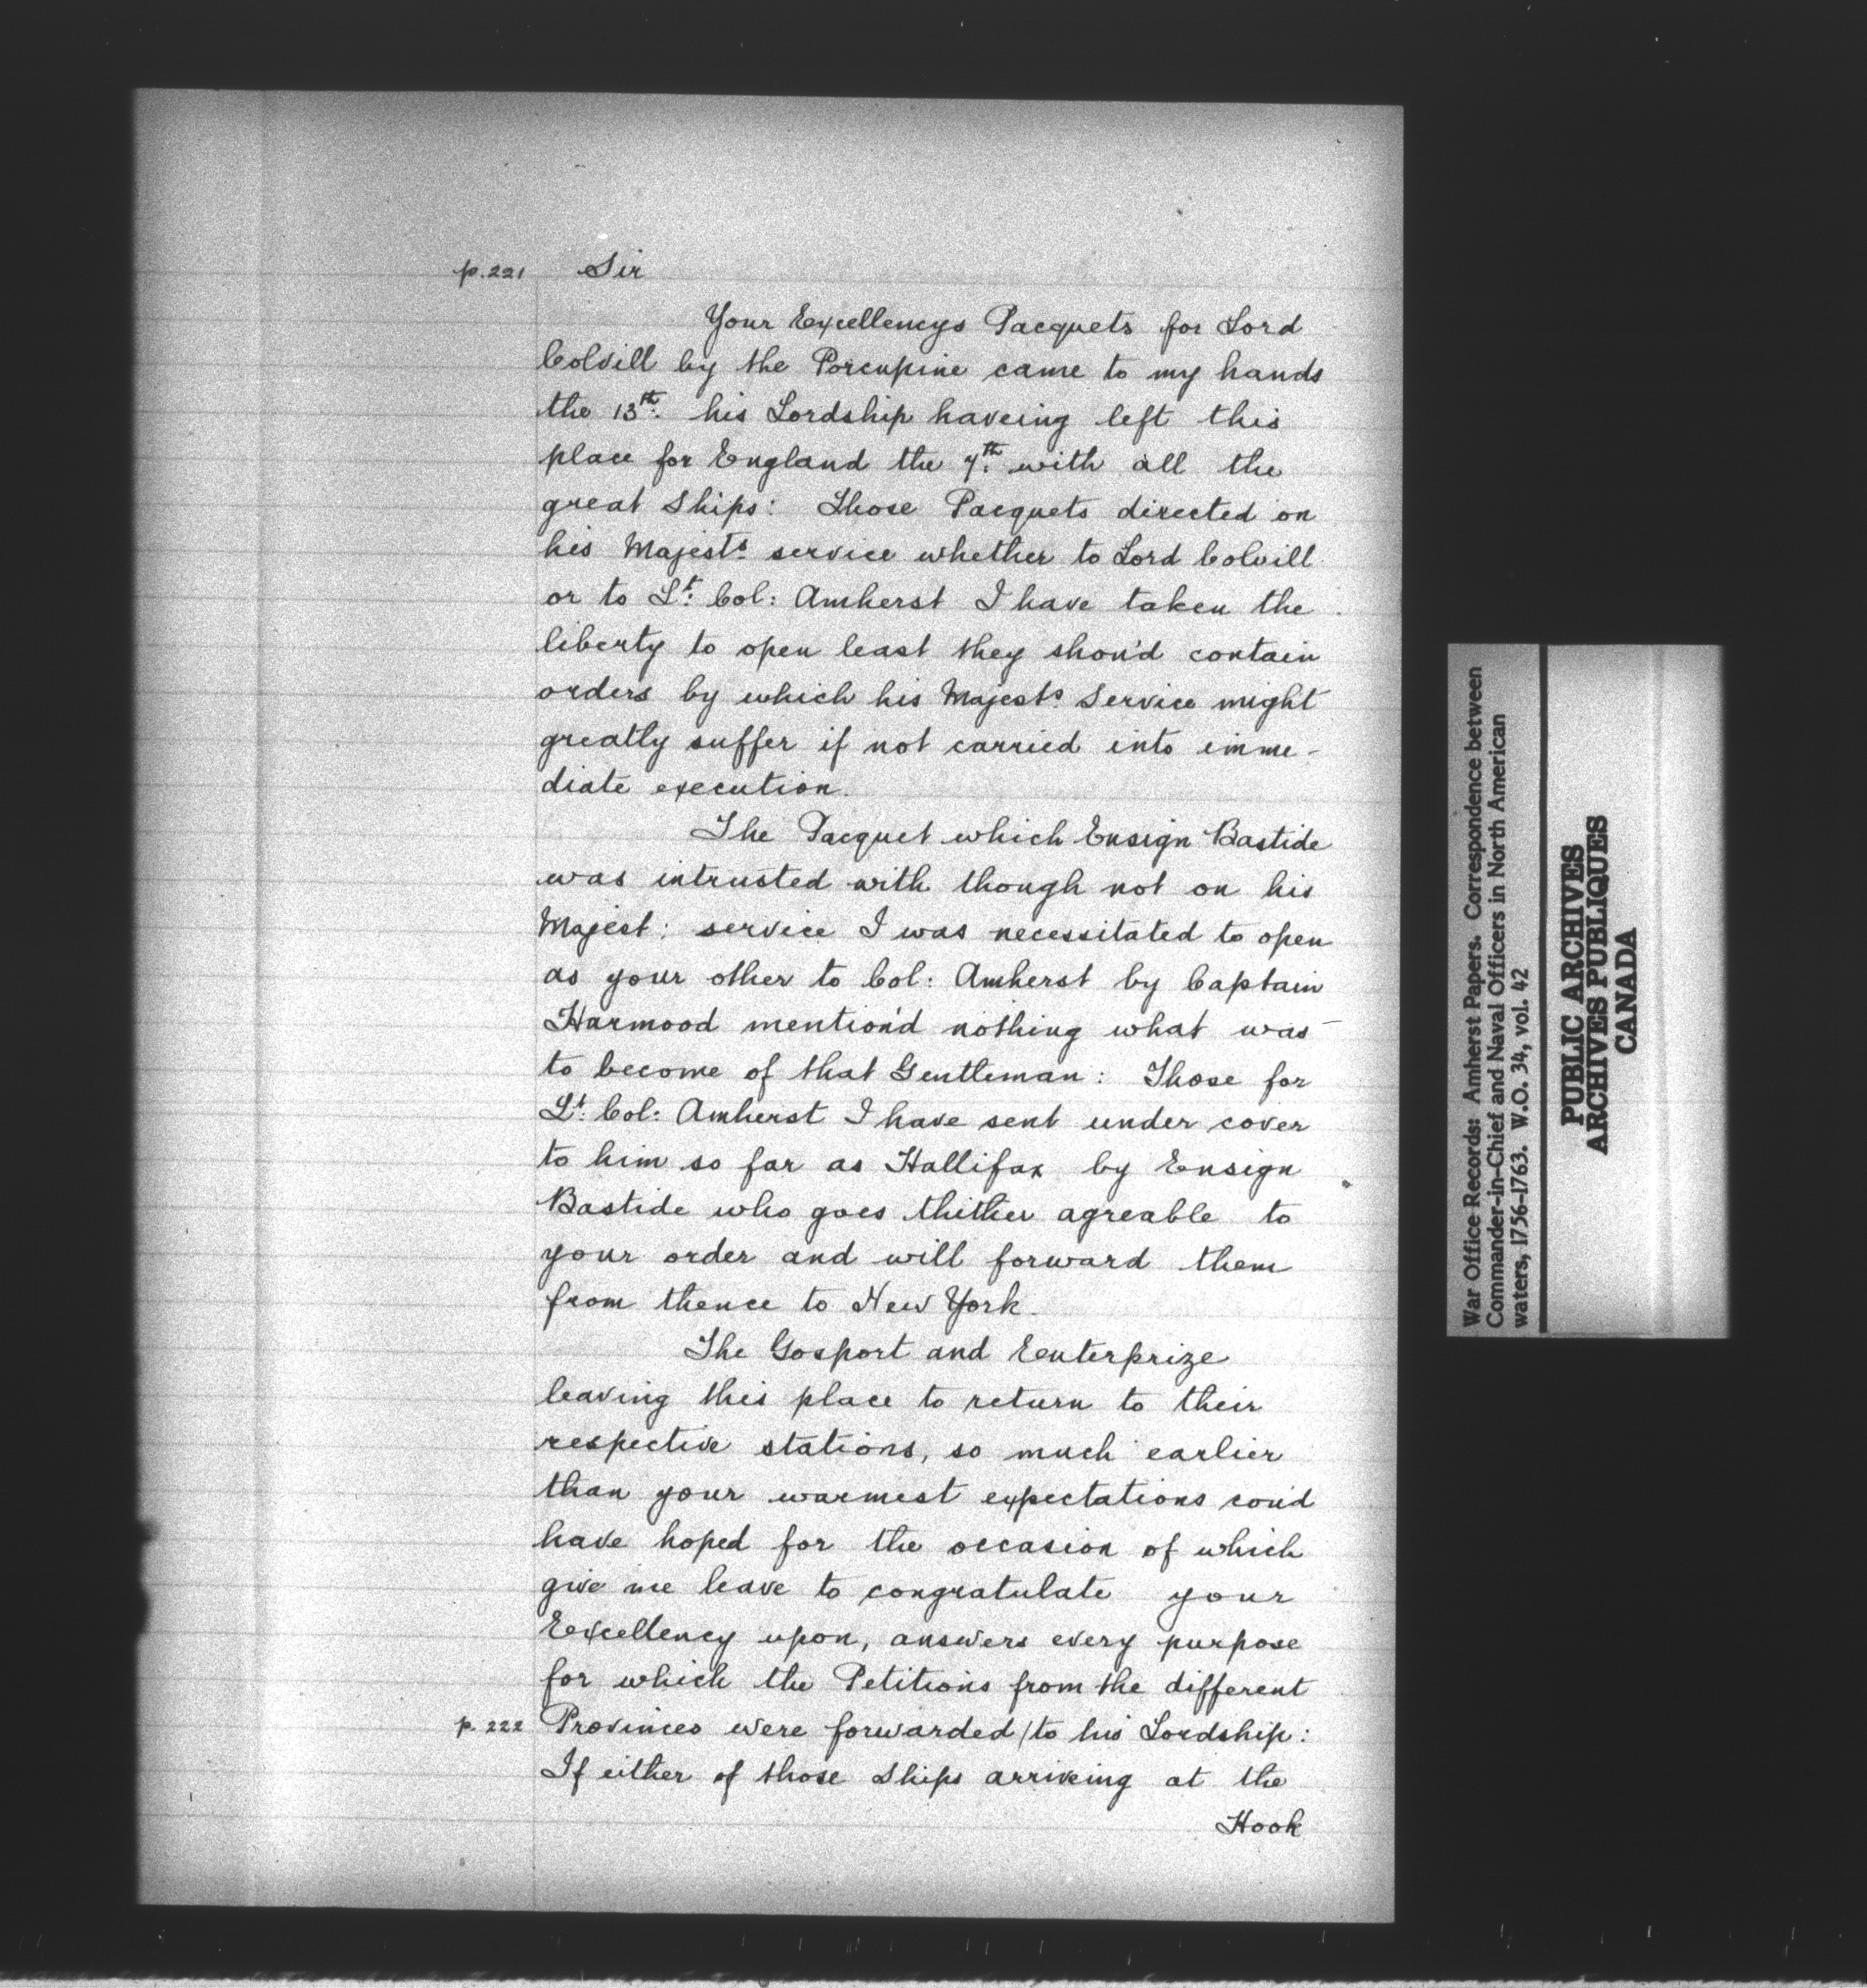 p.221 Sir
Your Excellencys Pacquets for Lord
Colvill by the Porcupine came to my hands
the 13th. his Lordship haveing left this
place for England the 7th. with all the
great Ships: Those Pacquets directed on
his Majests. service whether to Lord Colvill
or to Lt. Col: Amherst I have taken the
liberty to open least they shou'd contain
orders by which his Majests. Service might
greatly suffer if not carried into imme-
diate execution.
The Pacquet which Ensign Bastide
was intrusted with though not on his
Majest: service I was necessitated to open
as your other to Col: Amherst by Captain
Harmood mention'd nothing what was
to become of that Gentleman: Those for
Lt. Col: Amherst I have sent under cover
to him so far as Hallifax by Ensign
Bastide who goes thither agreable to
your order and will forward them
from thence to New York.
The Gosport and Enterprize
leaving this place to return to their
respective stations, so much earlier
than your warmest expectations cou'd
have hoped for the occasion of which
give me leave to congratulate your
Excellency upon, answers every purpose
for which the Petitions from the different
p.222 Provinces were forwarded/to his Lordship:
If either of those Ships arriving at the
Hook
War Office Records: Amherst Papers. Correspondence between
Commander-in-Chief and Naval Officers in North American
waters, 1756-1763. W.O. 34, vol. 42
PUBLIC ARCHIVES
ARCHIVES PUBLIQUES
CANADA